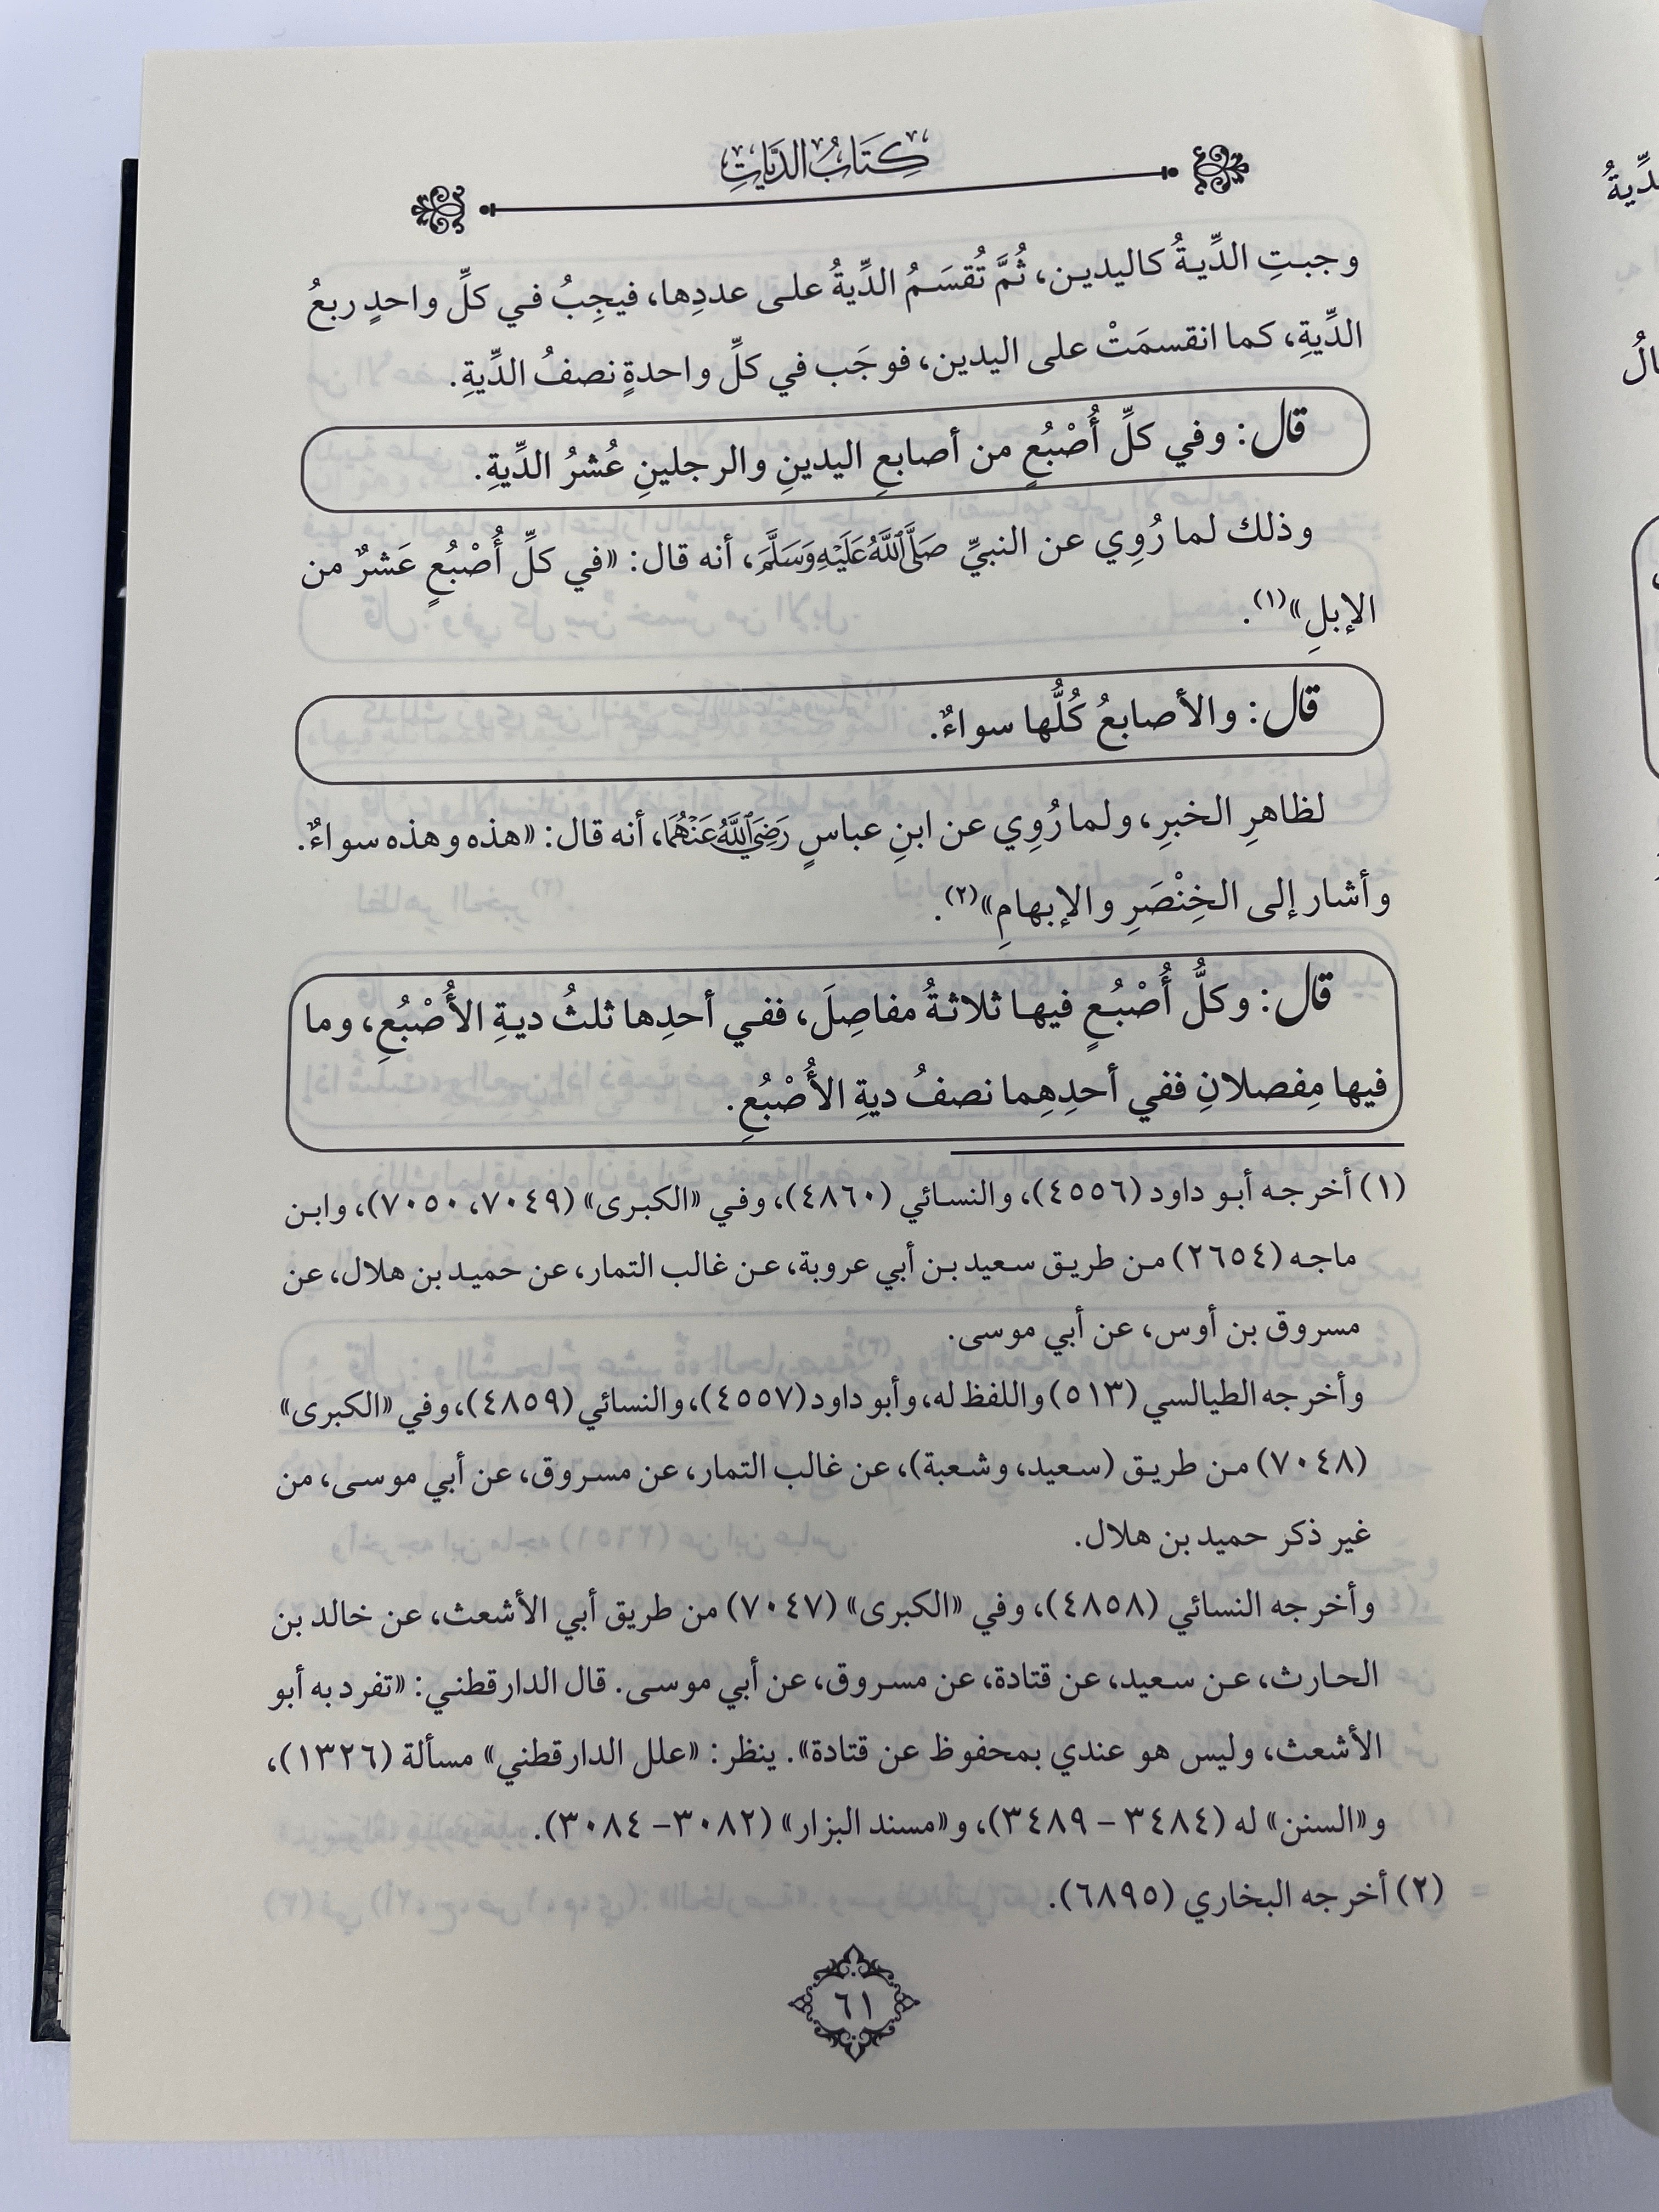 كِتَابُ الدِّيَاتِ
وجبتِ الدِّيةُ كاليدين، ثُمَّ تُقسَمُ الدِّيةُ على عددِها، فيجِبُ في كلِّ واحدٍ ربعُ
الدِّيةِ، كما انقسمَتْ على اليدين، فوجَب في كلِّ واحدةٍ نصفُ الدِّيةِ.
قال: وفي كلِّ أُصْبُعٍ من أصابعِ اليدينِ والرجلينِ عُشرُ الدِّيةِ.
وذلك لما رُوِي عن النبيِّ صَلَّى اللَّهُ عَلَيْهِ وَسَلَّمَ، أنه قال: «في كلِّ أُصْبُعٍ عَشرٌ من
الإبلِ»(١).
قال: والأصابعُ كُلُّها سواءٌ.
لظاهرِ الخبرِ، ولما رُوِي عن ابنِ عباسٍ رَضِيَ اللَّهُ عَنْهُمَا، أنه قال: «هذه وهذه سواءٌ.
وأشار إلى الخِنْصَرِ والإبهامِ»(٢).
قال: وكلُّ أُصْبُعٍ فيها ثلاثةُ مفاصِلَ، ففي أحدِها ثلثُ ديةِ الأُصْبُعِ، وما
فيها مِفصلانِ ففي أحدِهِما نصفُ ديةِ الأُصْبُعِ.
(١) أخرجه أبو داود (٤٥٥٦)، والنسائي (٤٨٦٠)، وفي «الكبرى» (٧٠٤٩، ٧٠٥٠)، وابن
ماجه (٢٦٥٤) من طريق سعيد بن أبي عروبة، عن غالب التمار، عن حميد بن هلال، عن
مسروق بن أوس، عن أبي موسى.
وأخرجه الطيالسي (٥١٣) واللفظ له، وأبو داود (٤٥٥٧)، والنسائي (٤٨٥٩)، وفي «الكبرى»
(٧٠٤٨) من طريق (سعيد، وشعبة)، عن غالب التمار، عن مسروق، عن أبي موسى، من
غير ذكر حميد بن هلال.
وأخرجه النسائي (٤٨٥٨)، وفي «الكبرى» (٧٠٤٧) من طريق أبي الأشعث، عن خالد بن
الحارث، عن سعيد، عن قتادة، عن مسروق، عن أبي موسى. قال الدارقطني: «تفرد به أبو
الأشعث، وليس هو عندي بمحفوظ عن قتادة». ينظر: «علل الدارقطني» مسألة (١٣٢٦)،
و«السنن» له (٣٤٨٤ – ٣٤٨٩)، و«مسند البزار» (٣٠٨٢– ٣٠٨٤).
(٢) أخرجه البخاري (٦٨٩٥).
٦١